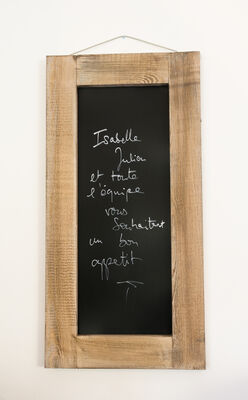 Isabelle
Julien
et toute
l'équipe
vous
souhaitent
un bon
appetit